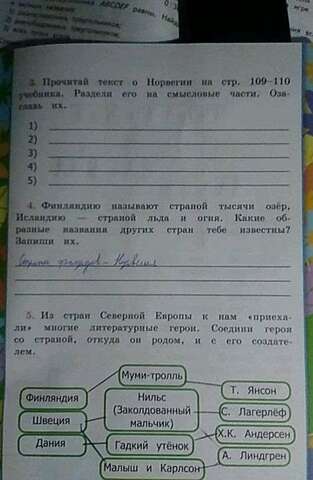 ABCDEF равны. Найд
треугольников;
3. Прочитай текст о Норвегии на стр. 109–110
учебника. Раздели его на смысловые части. Оза-
главь их.
1)
2)
3)
4)
5)
4. Финляндию называют страной тысячи озёр,
Исландию — страной льда и огня. Какие об-
разные названия других стран тебе известны?
Запиши их.
Страна фьордов – Норвегия
5. Из стран Северной Европы к нам «приеха-
ли» многие литературные герои. Соедини героя
со страной, откуда он родом, и с его создате-
лем.
Муми-тролль
Финляндия
Нильс
(Заколдованный
мальчик)
Т. Янсон
Швеция
С. Лагерлёф
Дания
Гадкий утёнок
Х.К. Андерсен
Малыш и Карлсон
А. Линдгрен